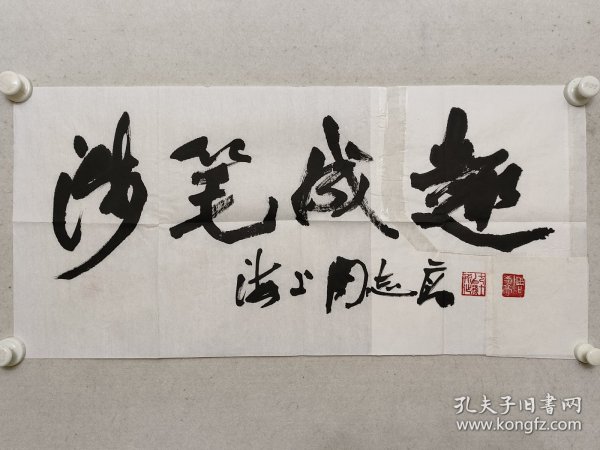 涉笔成趣
海上周志高
孔夫子旧書网
www.kongfz.com